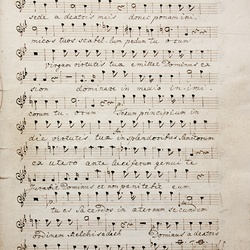 sede a dextris meis donec ponam ini
micos tuos scabel lum pedum tu orum
virgam virtutis tuæ emittet Dominus ex
sion dominare in medio ini mi
corum tu orum Tecum principium in
die virtutis tuæ in splendoribus Sanctorum
ex utero ante luciferum genui te
Juravit Dominus et non pænitebit eum
tu es sacerdos in æternum secundum
ordinem Melchisedech Dominus a dextris